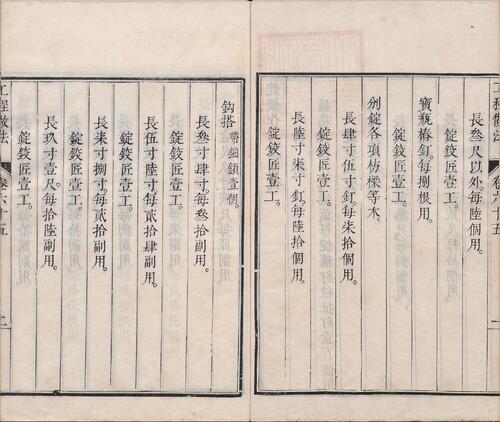 工程做法 卷六十五 一
長叁尺以外。每陸個用。
錠鉸匠壹工。
寳瓶椿釘。每捌根用。
錠鉸匠壹工。
剜錠各項枋樑等木。
長肆寸伍寸釘。每柒拾個用。
錠鉸匠壹工。
長陸寸柒寸釘。每陸拾個用。
錠鉸匠壹工。
鈎搭帶壹個。
長叁寸肆寸。每叁拾副用。
錠鉸匠壹工。
長伍寸陸寸。每貳拾肆副用。
錠鉸匠壹工。
長柒寸捌寸。每貳拾副用。
錠鉸匠壹工。
長玖寸壹尺。每拾陸副用。
錠鉸匠壹工。
工程做法 卷六十五 二